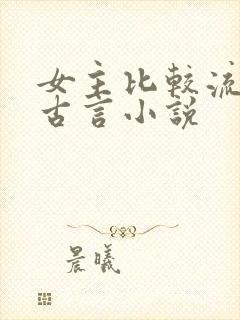 女主比較流
古言小說
晨曦